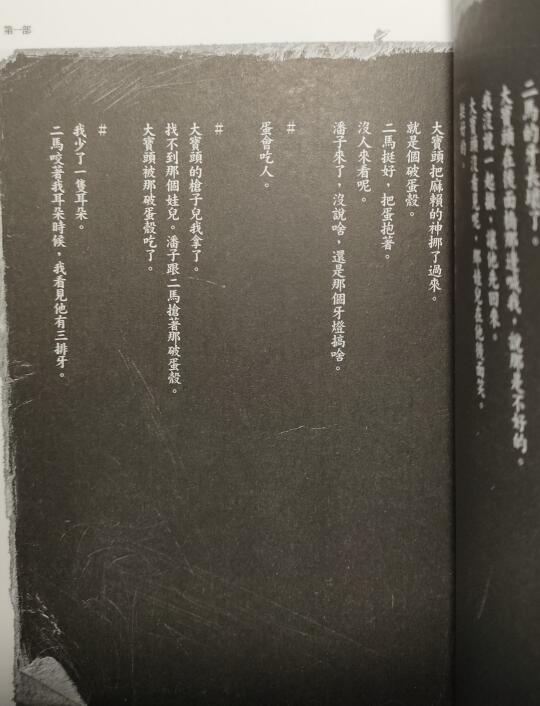 第一部
二馬的牙長壞了。
大寶頭在後面
我沒說一起
大寶頭沒看見呢，那娃兒在他後面笑。
大寶頭把麻賴的神挪了過來。
就是個破蛋殼。
二馬挺好，把蛋抱著。
沒人來看呢。
潘子來了，沒說啥，還是那個牙燈搞啥。
#
蛋會吃人。
#
大寶頭的槍子兒我拿了。
找不到那個娃兒。潘子跟二馬搶著那破蛋殼。
大寶頭被那破蛋殼吃了。
#
我少了一隻耳朵。
二馬咬著我耳朵時候，我看見他有三排牙。